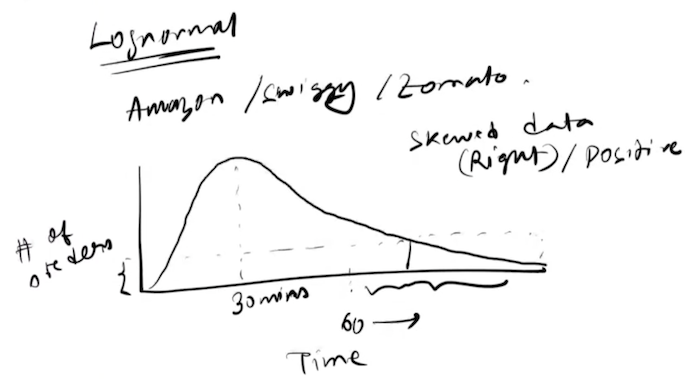 Lognormal
Amazon / Swiggy / Zomato.
Skewed data
(Right) / Positive
# of
orders
30mins
60
Time